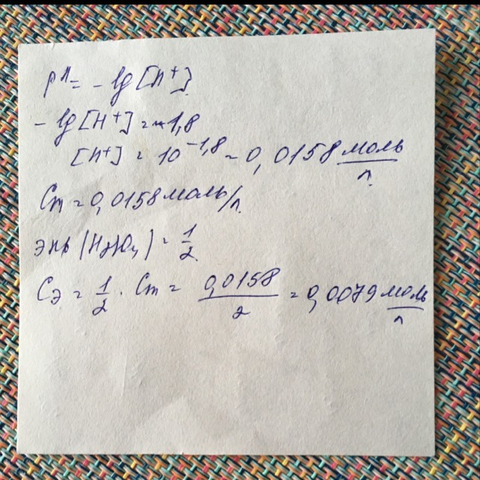 pH = -lg[H+]
-lg[H+] = -1,8
[H+] = 10^-1,8 = 0,0158 моль/л
Cm = 0,0158 моль/л.
(H2SO4) = 1/2
Cэ = 1/2 · Cm = 0,0158/2 = 0,0079 моль/л